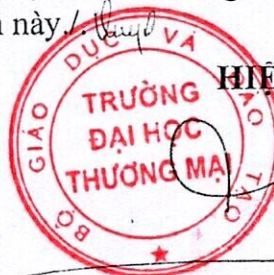 n này./.
HIỆ
BỘ GIÁO DỤC VÀ ĐÀO TẠO
TRƯỜNG
ĐẠI HỌC
THƯƠNG MẠI